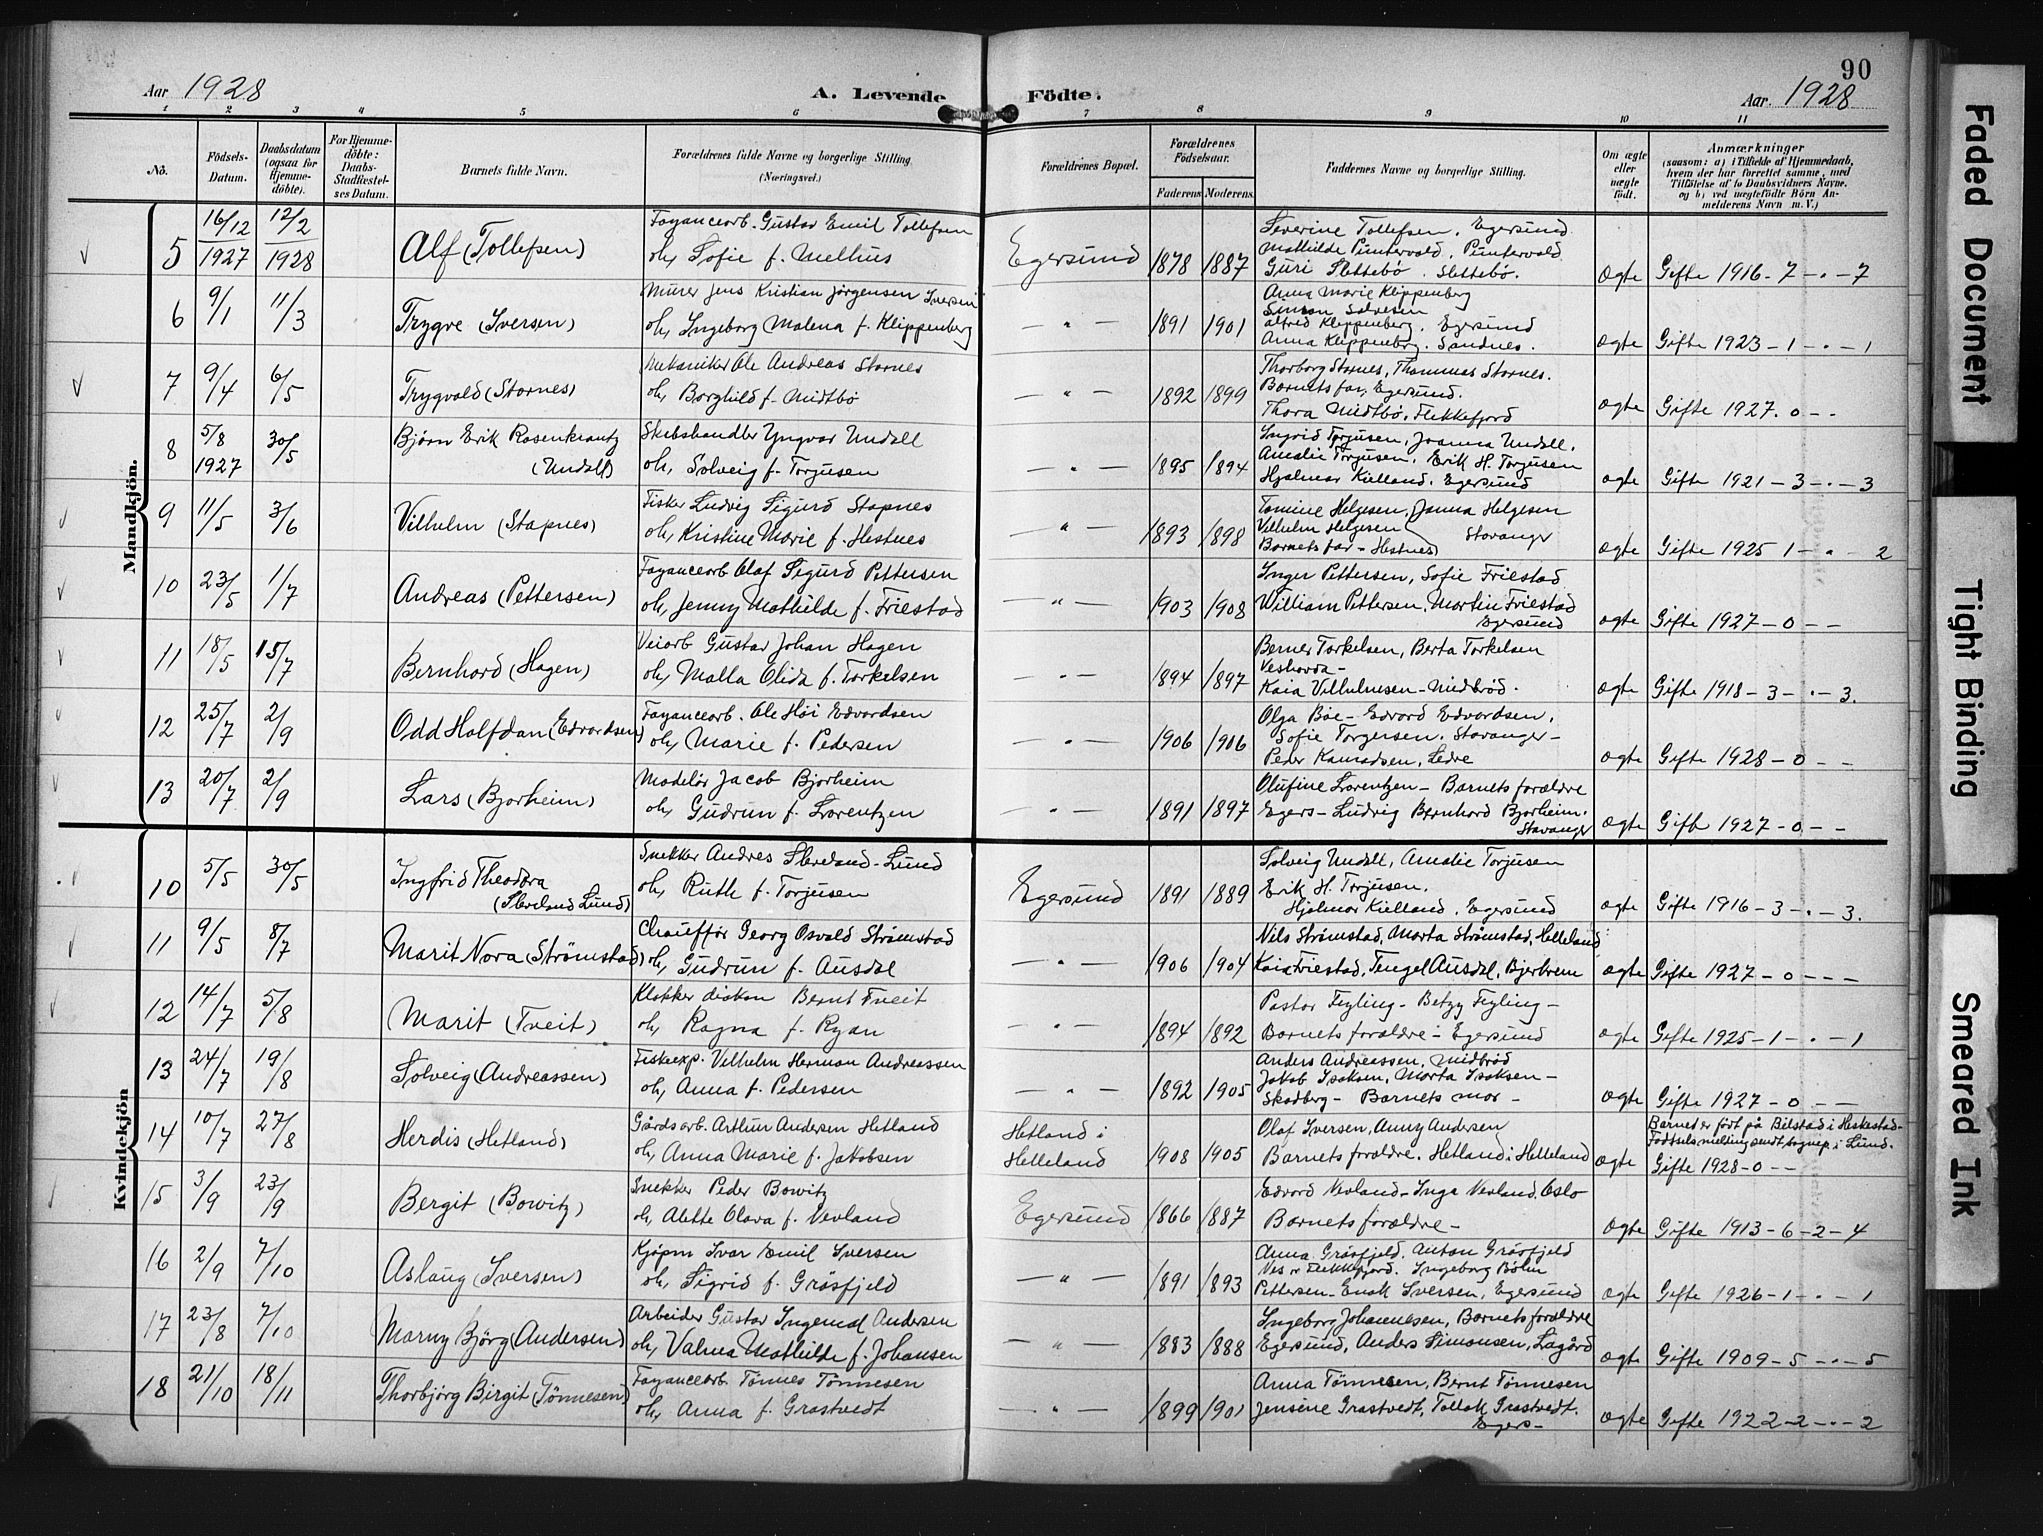 90
Aar 1928
A. Levende Födte.
Aar. 1928
1 2 3 4 5 6 7 8 9 10 11
No.
Födsels-Datum.
Daabsdatum (ogsaa for Hjemme-döbte).
For Hjemme-döbte: Daabs-Stadfæstel-ses Datum.
Barnets fulde Navn.
Forældrenes fulde Navne og borgerlige Stilling. (Næringsvei.)
Forældrenes Bopæl.
Forældrenes Födselsaar.
Faderens Moderens
Faddernes Navne og borgerlige Stilling.
Om ægte eller uægte födt.
Anmærkninger
(saasom: a) i Tilfælde af Hjemmedaab,
hvem der har forrettet samme, med
Tilföielse af to Daabsvidners Navne,
og b) ved uægtefödte Börn An-
melderens Navn m. V.)
Mandkjön.
5 16/12 1927 12/2 1928 Alf (Tollefsen)
Fayancearb. Gustav Emil Tollefsen
oh, Sofie f. Melhus
Egersund 1878 1887
Severine Tollefsen, Egersund
Mathilde Puntervold, Puntervold
Guri Slettebø. Slettebø.
ægte Gifte 1916-7-"-7
6 9/1 11/3 Trygve (Iversen)
Murer Jens Kristian Jørgensen Iversen
oh, Ingeborg Malena f. Klippenberg
-"- 1891 1901
Anna Marie Klippenberg
Simon Salvesen
Alfred Klippenberg. Egersund
Anna Klippenberg. Sandnes.
ægte Gifte 1923-1-"-1
7 9/4 6/5 Trygvald (Stornes)
Mekaniker Ole Andreas Stornes
oh, Borghild f. Midtbø
-"- 1892 1899
Thorborg Stornes, Thommas Stornes.
Barnets far, Egersund.
Thora Midtbø, Flekkefjord
ægte Gifte 1927. 0--
8 5/8 1927 30/5 Bjørn Erik Rosenkrantz
(Undall)
Skibshandler Yngvar Undall
oh, Solveig f. Torjusen
-"- 1895 1894
Ingrid Torjusen, Joanna Undall,
Amalie Torjusen, Erik H. Torjusen
Hjalmar Kielland. Egersund
ægte Gifte 1921-3-"-3
9 11/5 3/6 Vilhelm (Stapnes)
Fisker Ludvig Sigurd Stapnes
oh, Kristine Marie f. Hestnes
-"- 1893 1898
Tomine Helgesen, Janna Helgesen
Vilhelm Helgesen Stavanger
Barnets far - Hestnes
ægte Gifte 1925 1-"-2
10 23/5 1/7 Andreas (Pettersen)
Fayancearb Olaf Sigurd Pettersen
oh, Jenny Mathilde f. Friestad
-"- 1903 1908
Inger Pettersen, Sofie Friestad
William Pettersen, Martin Friestad
Egersund
ægte Gifte 1927-0--
11 18/5 15/7 Bernhard (Hagen)
Veiarb Gustav Johan Hagen
oh, Malla Olida f. Torkelsen
-"- 1894 1897
Berner Torkelsen, Berta Torkelsen
Kaia Vilhelmsen - Midbrød.
ægte Gifte 1918-3-"-3.
12 25/7 2/9 Odd Halfdan (Edvardsen)
Fayancearb. Ole Høi Edvardsen
oh, Marie f. Pedersen
-"- 1906 1906
Olga Bøe - Edvard Edvardsen,
Sofie Torgersen. Stavanger -
Peder Konradsen, Ledre
ægte Gifte 1928-0--
13 20/7 2/9 Lars (Bjorheim)
Modelør Jacob Bjorheim
oh, Gudrun f. Lorentzen
-"- 1891 1897
Olufine Lorentzen - Barnets forældre
Egers - Ludvig Bernhard Bjorheim.
Stavanger
ægte Gifte 1927-0--
Kvindekjön
10 5/5 30/5 Ingfrid Theodora
(Sleveland Lund)
Snekker Andres Sleveland-Lund
oh, Ruth f. Torjusen
Egersund 1891 1889
Solveig Undall, Amalie Torjusen
Erik H. Torjusen,
Hjalmar Kielland. Egersund
ægte Gifte 1916-3-"-3.
11 9/5 8/7 Marit Nora (Strømstad)
Chauffør Georg Osvald Strømstad
oh, Gudrun f. Ausdal
-"- 1906 1904
Nils Strømstad, Marta Strømstad, Helleland
Kaia Friestad, Tengel Ausdal, Bjerkreim
ægte Gifte 1927-0---
12 14/7 5/8 Marit (Tveit)
Klokker diakon Bernt Tveit
oh, Ragna f. Ryan
-"- 1894 1892
Pastor Feyling - Betzy Feyling -
Barnets forældre - Egersund
ægte Gifte 1925-1-"-1
13 24/7 19/8 Solveig (Andreassen)
Fiskeexp. Vilhelm Herman Andreassen
oh, Anna f. Pedersen
-"- 1892 1905
Anders Andreassen, Midbrød
Jakob Isaksen, Marta Isaksen -
Skadberg - Barnets mor -
ægte Gifte 1927-0--
14 10/7 27/8 Herdis (Hetland)
Gårdsarb. Arthur Andersen Hetland
oh, Anna Marie f. Jakobsen
Hetland i
Helleland 1908 1905
Olaf Iversen, Anny Andersen
Barnets forældre. Hetland i Helleland
ægte
Barnet er født på Bilstad i Heskestad -
Fødselsmelding sendt sognep. i Lund.
Gifte 1928-0--
15 3/9 23/9 Bergit (Bowitz)
Snekker Peder Bowitz
oh, Alette Olava f. Nevland
Egersund 1866 1887
Edvard Nevland - Inga Nevland, Oslo
Barnets forældre -
ægte Gifte 1913-6-2-4
16 2/9 7/10 Aslaug (Iversen)
Kjøpm Ivar Emil Iversen
oh, Sigrid f. Gråsfjeld
-"- 1891 1893
Anna Gråsfjeld, Anton Gråsfjeld
Flekkefjord. Ingeborg Bøhn
Pettersen - Enok Iversen, Egersund
ægte Gifte 1926-1-"-1
17 23/8 7/10 Marny Bjørg (Andersen)
Arbeider Gustav Ingemal Andersen
oh, Valma Mathilde f. Johansen
-"- 1883 1888
Ingeborg Johannesen, Barnets forældre
Egersund, Anders Simonsen, Lagård
ægte Gifte 1909-5-"-5
18 21/10 18/11 Thorbjørg Birgit (Tønnesen)
Fayancearb. Tønnes Tønnesen
oh, Anna f. Grastvedt
-"- 1899 1901
Anna Tønnesen, Bernt Tønnesen
Jensine Grastvedt, Tollak Grastvedt.
Egers -
ægte Gifte 1922-2-"-2
Faded Document
Tight Binding
Smeared Ink